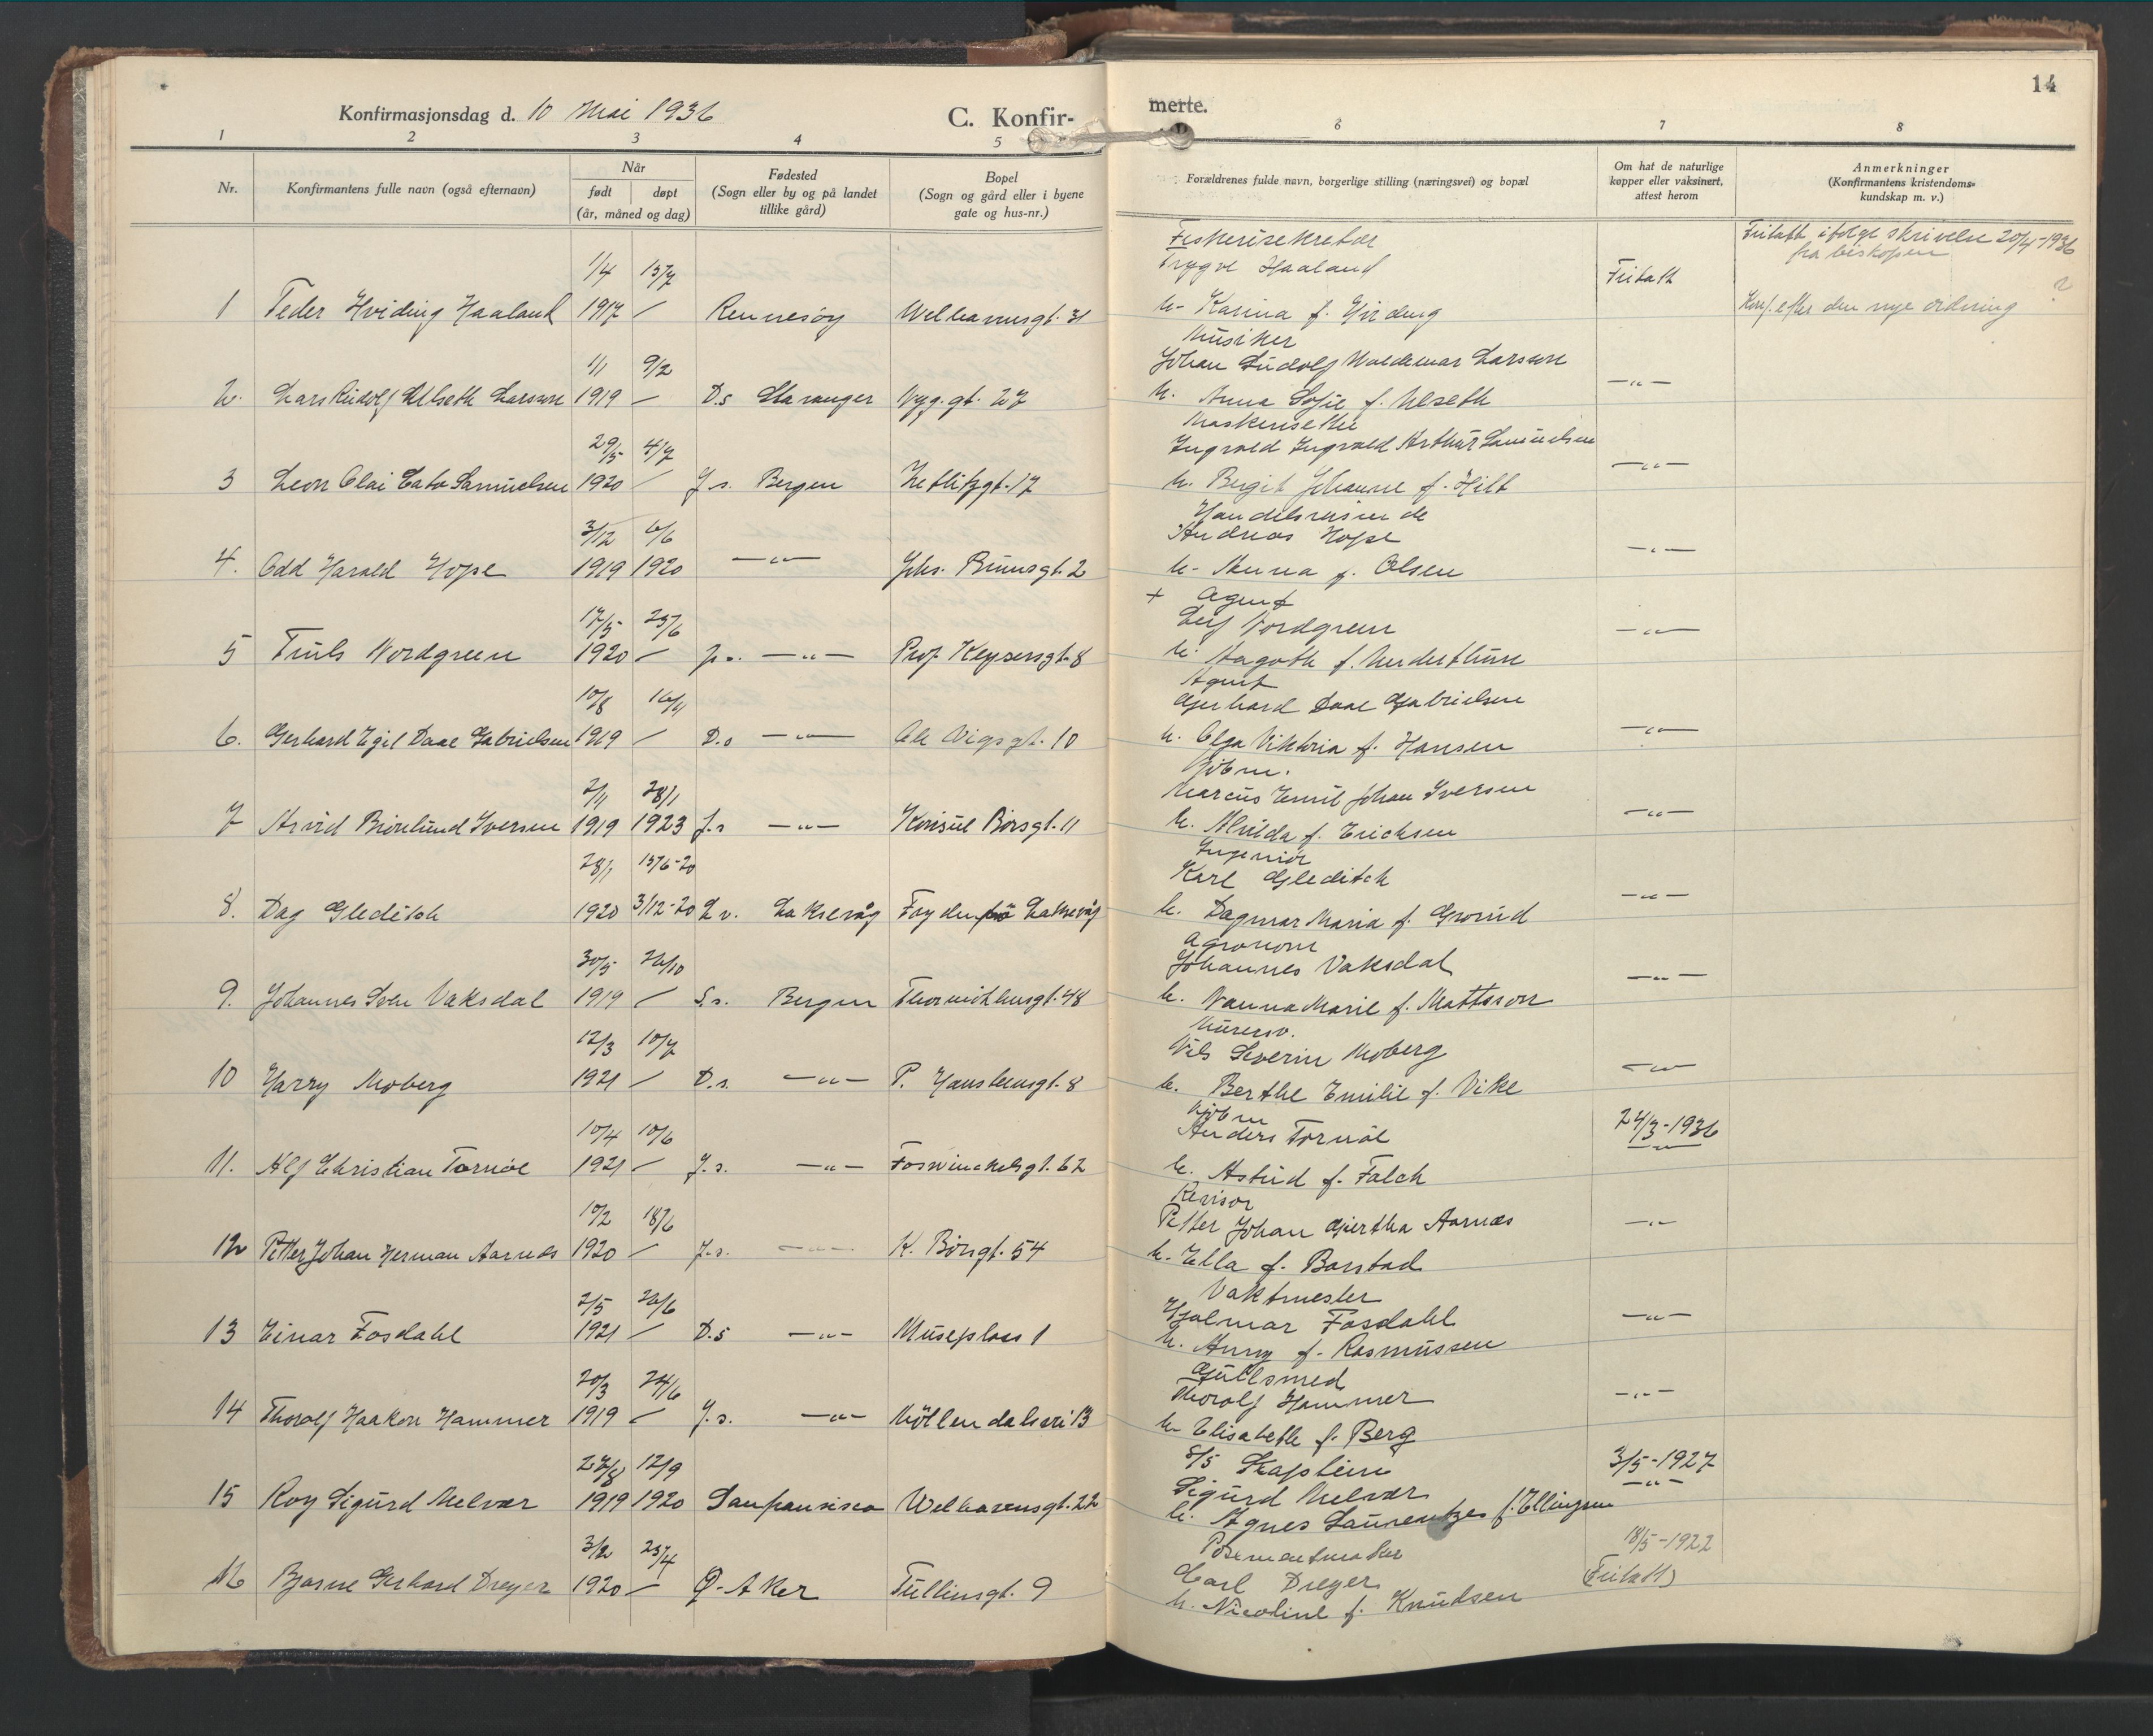 14
Konfirmasjonsdag d. 10 Mai 1936
C. Konfir-
merte.
1 2 3 4 5 6 7 8
Nr.
Konfirmantens fulle navn (også efternavn)
Når
født døpt
(år, måned og dag)
Fødested
(Sogn eller by og på landet
tillike gård)
Bopel
(Sogn og gård eller i byene
gate og hus-nr.)
Forældrenes fulde navn, borgerlige stilling (næringsvei) og bopæl
Om hat de naturlige
kopper eller vaksinert,
attest herom
Anmerkninger
(Konfirmantens kristendoms-
kundskap m. v.)
Fiskerisekretær
Fritatt ifølge skrivelse 20/4-1936
fra biskopen
1/4 Trygve Haaland Fritatt
1 Peder Hviding Haaland 1917 / Rennesøy Welhavensgt. 31
h. Karina f. Hviding
Konf. efter den nye ordning ?
Musiker
1/1 9/2 Johan Ludolf Waldemar Larsson
2. Lars Rudolf Ulseth Larsson 1919 / D.s Stavanger Nyg.gt. 27
h. Anna Sofie f. Ulseth —"—
29/5 4/7 Ingvald Arthur Samuelsen
3 Leon Clai Cato Samuelsen 1920 / J.s. Bergen Zetlitzgt. 17
h. Birgit Johanne f. Hilt —"—
Handelsreisende
3/12 6/6 Andreas Hope
4. Odd Harald Hope 1919 1920 —"— Johs. Brunsgt. 2
h. Anna f. Olsen —"—
+ Agent
17/5 Leif Nordgreen
5 Truls Nordgreen 1920 / —"— Prof. Keysersgt. 8
h. Aagoth f. —"—
Agent
10/8 16/11 Gerhard Daae Gabrielsen
6. Gerhard Egil Daae Gabrielsen 1919 / D.s —"— Ole Vigsgt. 10
h. Olga Viktoria f. Hansen —"—
Kjøbm.
2/11 28/1 Marcus Emil Johan Iversen
7 Arvid Bronlund Iversen 1919 1923 J.s —"— Konsul Børsgt. 11
h. Alvilda f. Erichsen —"—
Ingeniør
28/1 13/6-20 Karl Gleditsch
8. Dag Gleditsch 1920 3/12-20 L v. Laksevåg Laksevåg
h. Dagmar Maria f. —"—
Agronom
30/5 26/10 Johannes Vaksdal
9. Johannes Sven Vaksdal 1919 / S.s. Bergen Thormøhlensgt. 48
h. Nanna Marie f. Mattsson —"—
Murersv.
12/3 10/7 Nils Severin Moberg
10 Harry Moberg 1921 / D.s. —"— P. Hanssensgt. 8
h. Berthe Emilie f. Vike —"—
Kjøbm
10/4 10/6 Anders Tornøe 24/3-1936
11. Alf Christian Tornøe 1921 / J.s. —"— Fosswinckelsgt. 62
h. Astrid f. Falch —"—
Revisor
10/2 18/6 Petter Johan Gjertha Aarnæs
12 Petter Johan Herman Aarnæs 1920 / J.s. —"— K. Børsgt. 54
h. Ella f. Barstad —"—
Vaktmester
2/5 26/6 Hjalmar Fosdahl
13 Einar Fosdahl 1921 / D.s —"— Museplass 1
h. Anny f. Rasmussen —"—
Gullsmed
20/3 24/6 Thorolf Hammer
14 Thorolf Haakon Hammer 1919 / J.s. —"— Möllendalsvei 13
h. Elisabeth f. Berg —"—
S/S Kaptein 3/5-1927
27/8 12/9 Sigurd Melvær —"—
15 Roy Sigurd Melvær 1919 1920 Sanfransisco Welhavensgt. 22
h. Agnes f. Ellingsen
Posementmaker 18/5-1922
3/2 Carl Dreyer (Fritatt)
16 Bjarne Gerhard Dreyer 1920 / Ø. Aker Tullinsgt. 9
h. Nicoline f. Knudsen